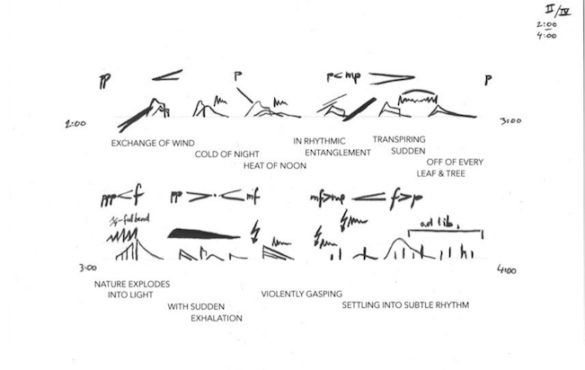 II/IV
2:00
4:00
pp < p p<mp > p
2:00 3:00
EXCHANGE OF WIND
COLD OF NIGHT
HEAT OF NOON
IN RHYTHMIC
ENTANGLEMENT
TRANSPIRING
SUDDEN
OFF OF EVERY
LEAF & TREE
ppp<f pp > · < mf mf>mp < f>p
ad lib.
3:00 4:00
NATURE EXPLODES
INTO LIGHT
WITH SUDDEN
EXHALATION
VIOLENTLY GASPING
SETTLING INTO SUBTLE RHYTHM